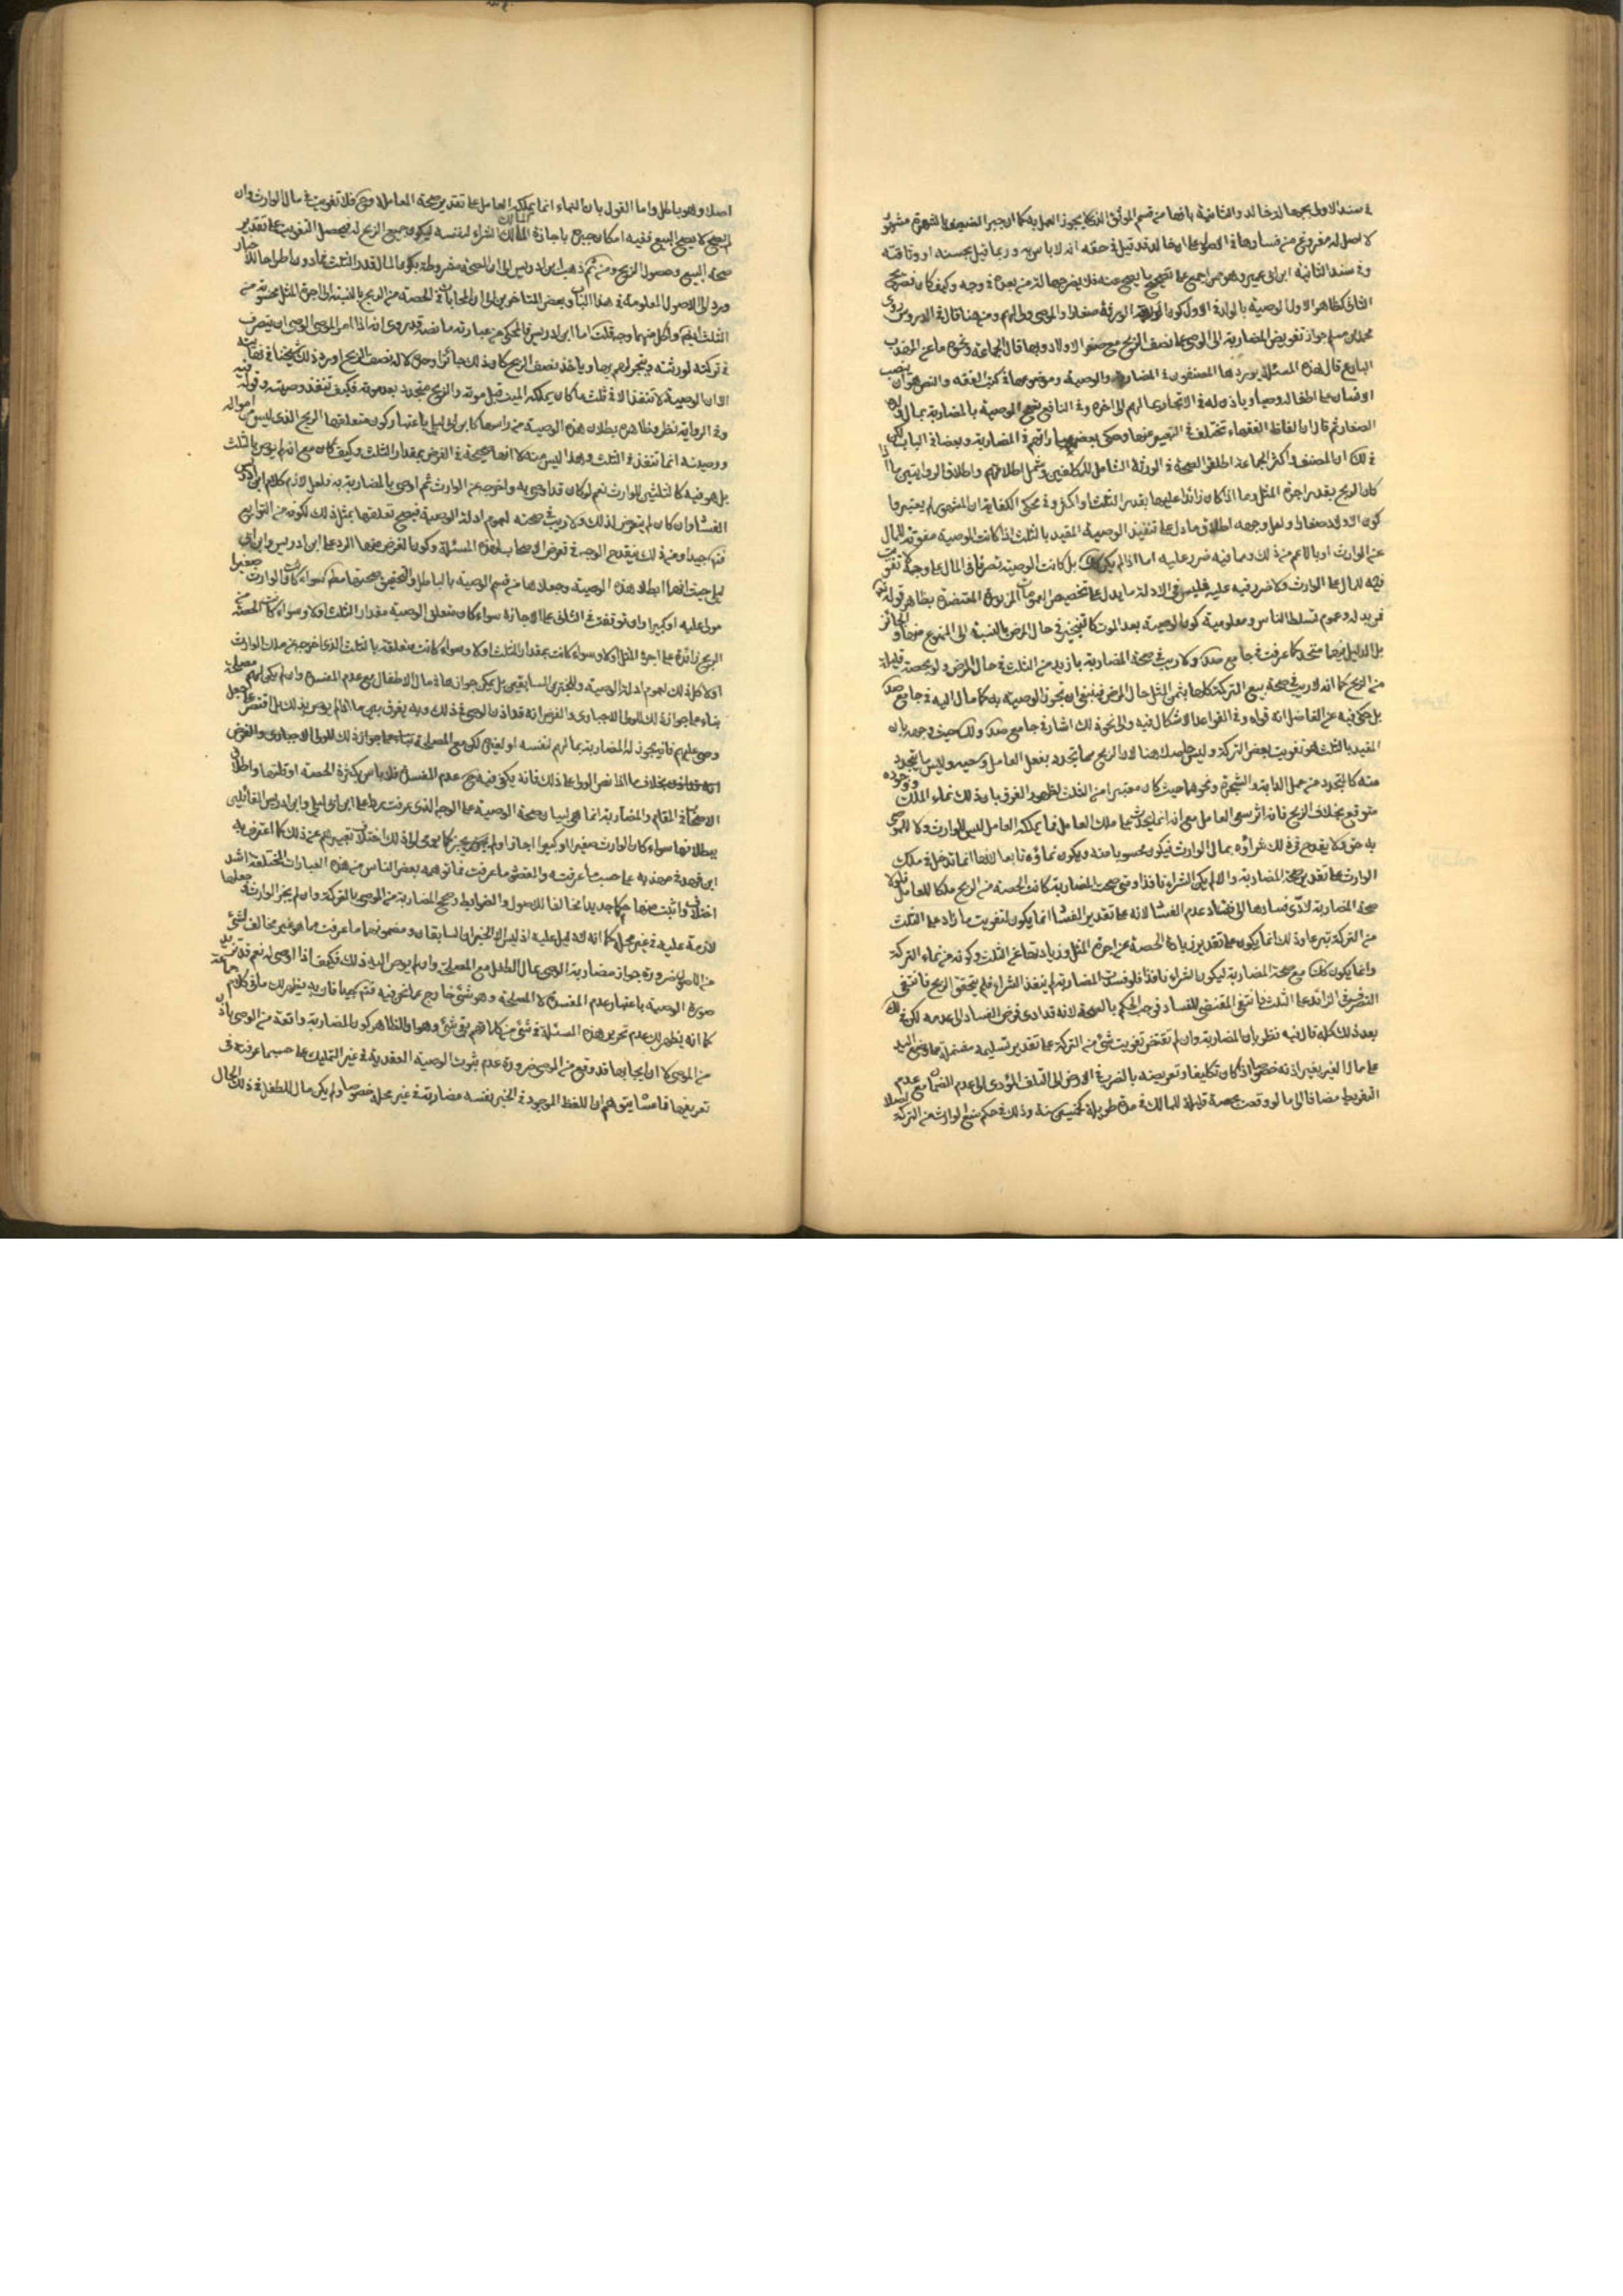 في سند الاولى بجهالة خالد والثانية بانها من قسم الموثق الذي لا يجوز العمل به كما ان جبر الضعيف بالشهرة مشهور
لا اصل له مفروغ من فسادها في الاصول على ان خالد قد قيل في حقه انه لا باس به وربما قيل بحسنه او وثاقته
وفي سند الثانية ابن ابي عمير وهو ممن اجمع على تصحيح ما يصح عنه فلا يضر جهالة من بعده في وجه وكيف كان فصريح
الثاني كظاهر الاول الوصية بالولد الاول كون الورثة صغارا والموصى وليا لهم ومن هنا قال في الدروس روى
محمد بن مسلم جواز تفويض المضاربة الى الوصي على نصف الربح مع صغر الاولاد وبها قال الجماعة ونحوه ما عن المهذب
البارع قال هذه المسئلة يوردها المصنفون في المضاربة والوصية وموضوعها في كتب الفقه والنص هو ان ينصب
الانسان على اطفاله وصيا وياذن له في الاتجار بمالهم الى اخره وفي النافع تصح الوصية بالمضاربة بمال ولده
الصغار ثم قال ان الفاظ الفقهاء تختلف في التعبير عنها وحكى بعض عباراتهم في المضاربة وبعضا في الباب لكن
في لك ان المصنف واكثر الجماعة اطلقوا الصحة في الورثة الشامل للمكلفين وشمل اطلاقهم واطلاق الروايتين ما اذا
كان الربح بقدر اجرة المثل وما اذا كان زائدا عليها بقدر الثلث او اكثر وفي محكي الكفاية ان المشهور لم يعتبروا
كون الاولاد صغارا ولعل وجهه اطلاق ما دل على تنفيذ الوصية المقيد بالثلث اذا كانت الوصية مفوتة للمال
عن الوارث او بالاعم من ذلك ومما فيه ضرر عليه اما اذا لم يكن بل كانت الوصية تصرفا في المال على وجه لا تفويت
فيه للمال على الوارث ولا ضرر فيه عليه فليس في الادلة ما يدل على تخصيص العمومات المزبورة المعتضدة بظاهر قوله تعالى
فمن بدله وعموم تسلط الناس ومعلومية كون الوصية بعد الموت كالتنجيز في حال المرض بالنسبة الى الممنوع منها والجائز
بل الدليل فيهما متحد كما عرفت في جامع صد ولا ريب في صحة المضاربة بازيد من الثلث في حال المرض ولو بحصة قليلة
من الربح كما انه لا ريب في صحة بيع التركة كلها بثمن المثل حال المرض فينبغي ان تجوز الوصية به كما مال اليه في جامع صد
بل حكى فيه عن الفاضل انه قواه وفي القواعد الاشكال فيه والى نحو ذلك اشار في جامع صد ولك حيث وجهه بان
المقيد بالثلث هو تفويت بعض التركة وليس حاصلا هنا لان الربح مما يتجدد بفعل العامل وسعيه وليس ما يتجدد
منه كالمتجدد من حمل الدابة والشجرة ونحوهما حيث كان معتبرا من الثلث لظهور الفرق بان ذلك نماء الملك ووجوده
متوقع بخلاف الربح فانه اثر سعي العامل مع انه انما يحدث على ملك العامل فما يملكه العامل ليس للوارث ولا للموصي
به حق ولا يقدح في ذلك شراؤه بمال الوارث فيكون محسوبا منه ويكون نماؤه تابعا لانها انما تدخل في ملك
الوارث على تقدير صحة المضاربة والا لم يكن الشراء نافذا ومتى صحت المضاربة كانت الحصة من الربح ملكا للعامل فلولا
صحة المضاربة لادى فسادها الى فساد عدم الفساد لانه على تقدير الفساد انما يكون لتفويت ما زاد على الثلث
من التركة تبرعا وذلك انما يكون على تقدير زيادة الحصة عن اجرة المثل وزيادتها عن الثلث وكونه من نماء التركة
وانما يكون كذلك مع صحة المضاربة ليكون الشراء نافذا فلو فسدت المضاربة لم ينفذ الشراء فلم يتحقق الربح فانتفى
التصرف الزائد على الثلث فانتفى المقتضي للفساد فوجب الحكم بالصحة لانه قد ادى فرض الفساد الى عدمه لكن في لك
بعد ذلك كله قال فيه نظر بان المضاربة وان لم تقتض تفويت شئ من التركة على تقدير تسليمه مشتملة على وضع اليد
على مال الغير بغير اذنه خصوصا اذا كان تكليفا وتعريضه بالضرب في الارض الى التلف المؤدي الى عدم الضمان مع عدم
التفريط مضافا الى ما لو وقعت بحصة قليلة للمالك في مدة طويلة كخمسين سنة وذلك في حكم منع الوارث من التركة اصلا
اصلا وهو باطل واما القول بان النماء انما يملكه العامل على تقدير صحة المعاملة ومع فلا تفويت في مال الوارث وان
لم تصح لا يصح البيع ففيه امكان جبره باجازة المالك الشراء لنفسه ليكون جميع الربح له فيحصل التفويت على تقدير
صحة البيع وحصول الربح ومن ثم ذهب ابن ادريس الى ان الصحة مشروطة بكون المال قدر الثلث فما دون اطراحا للاخبار
وردا الى الاصول المعلومة في هذا الباب وبعض المتاخرين الى ان المحاباة في الحصة من الربح بالنسبة الى اجرة المثل محسوبة من
الثلث ايضا ولكل منهما وجه قلت اما ابن ادريس فالمحكي من عبارته ما نصه قد روى انه اذا امر الموصي الوصي ان يتصرف
في تركته لورثته ويتجر لهم بها وياخذ نصف الربح كان ذلك جائزا وحلال له نصف الربح اورد ذلك شيخنا في نهايته
الا ان الوصية لا تنفذ الا في ثلث ما كان يملكه الميت قبل موته والربح متجدد بعد موته فكيف تنفذ وصيته وقوله فيه
وفي الرواية نظر وظاهره بطلان هذه الوصية من راسها كابن ابي ليلى باعتبار كون متعلقها الربح الذي ليس من امواله
ووصيته انما تنفذ في الثلث وهذا ليس منه لا انها صحيحة في الفرض بمقدار الثلث وكيف كان مع انه لم يوص بالثلث
بل هو فيه كالثلثين للوارث نعم لو كان قد اوصى به واخرجه عن الوارث ثم اوصى بالمضاربة به ولعل لازم كلام ابن ادريس
الفساد وان كان لم يتعرض لذلك ولا ريب في صحته لعموم ادلة الوصية فيصح تعلقها بمثل ذلك لكونه من التوابع
فتامل جيدا ومن ذلك ينقدح الوجه في تعرض الاصحاب لهذه المسئلة وكون الغرض منها الرد على ابن ادريس وابن ابي
ليلى حيث انهما ابطلا هذه الوصية وجعلاها من قسم الوصية بالباطل والتحقيق صحتها مطلقا سواء كان الوارث صغيرا
مولى عليه او كبيرا وان توقفت في الثاني على الاجازة سواء كان متعلق الوصية مقدار الثلث اولا وسواء كانت الحصة من
الربح زائدة على اجرة المثل اولا وسواء كانت بمقدار الثلث اولا وسواء كانت متعلقة بالثلث الذي اخرجه عن ملك الوارث
اولا كل ذلك لعموم ادلة الوصية والخبرين السابقين بل يمكن جوازها في مال الاطفال مع عدم المفسدة وان لم يكن لهم مصلحة
بناء على جواز ذلك للولي الاجباري والفرض انه قد اذن للوصي في ذلك وبه يفرق بين ما اذا لم يوص بذلك بل اقتصر على جعل
وصي عليهم فانه يجوز له المضاربة بمالهم لنفسه او لغيره لكن مع المصلحة بناء على جواز ذلك للولي الاجباري والفرض
انه قد اذن بخلاف ما اذا نص الولي على ذلك فانه يكفي فيه مع عدم المفسدة فلا باس بكثرة الحصة او قلتها واطلاق
الاصحاب في المقام والمضاربة انما هي لبيان صحة الوصية على الوجه الذي عرفت ردا على ابن ابي ليلى وابن ادريس القائلين
ببطلانها سواء كان الوارث صغيرا او كبيرا اجاز او لم يجز كما يومي الى ذلك اختلاف تعبيرهم عن ذلك كما اعترف به
ابن فهد في مهذبه على حسب ما عرفته والمقصود ما عرفت فما توهمه بعض الناس من هذه العبارات المختلفة اشد
اختلاف واثبت منها حكما جديدا مخالفا للاصول والضوابط وصحح المضاربة من الموصي بالتركة وان لم يجز الوارث وجعلها
لازمة عليه في غير محله كما انه لا دليل عليه اذ ليس الا الخبران السابقان ومضمونهما ما عرفت مما هو غير مخالف لشئ
من الاصول ضرورة جواز مضاربة الوصي بمال الطفل مع المصلحة وان لم يوص اليه ذلك فكيف اذا اوصى له نعم قد تزيد
صورة الوصية باعتبار عدم المفسدة لا المصلحة وهو شئ خارج عما نحن فيه فتامل جيدا فانه به يظهر لك ما في كلام جماعة
كما انه يظهر لك عدم تحرير هذه المسئلة في شئ من كلماتهم بقي شئ وهو ان الظاهر كون المضاربة واقعة من الوصي باذن
من الموصي لا ان ايجابها قد وقع من الموصي ضرورة عدم ثبوت الوصية العقدية في غير التمليك على حسبما عرفته في
تعريفها فما عساه يتوهم ان اللفظ الموجود في الخبر نفسه مضاربة في غير محله خصوصا ولم يكن مال للطفل في ذلك الحال